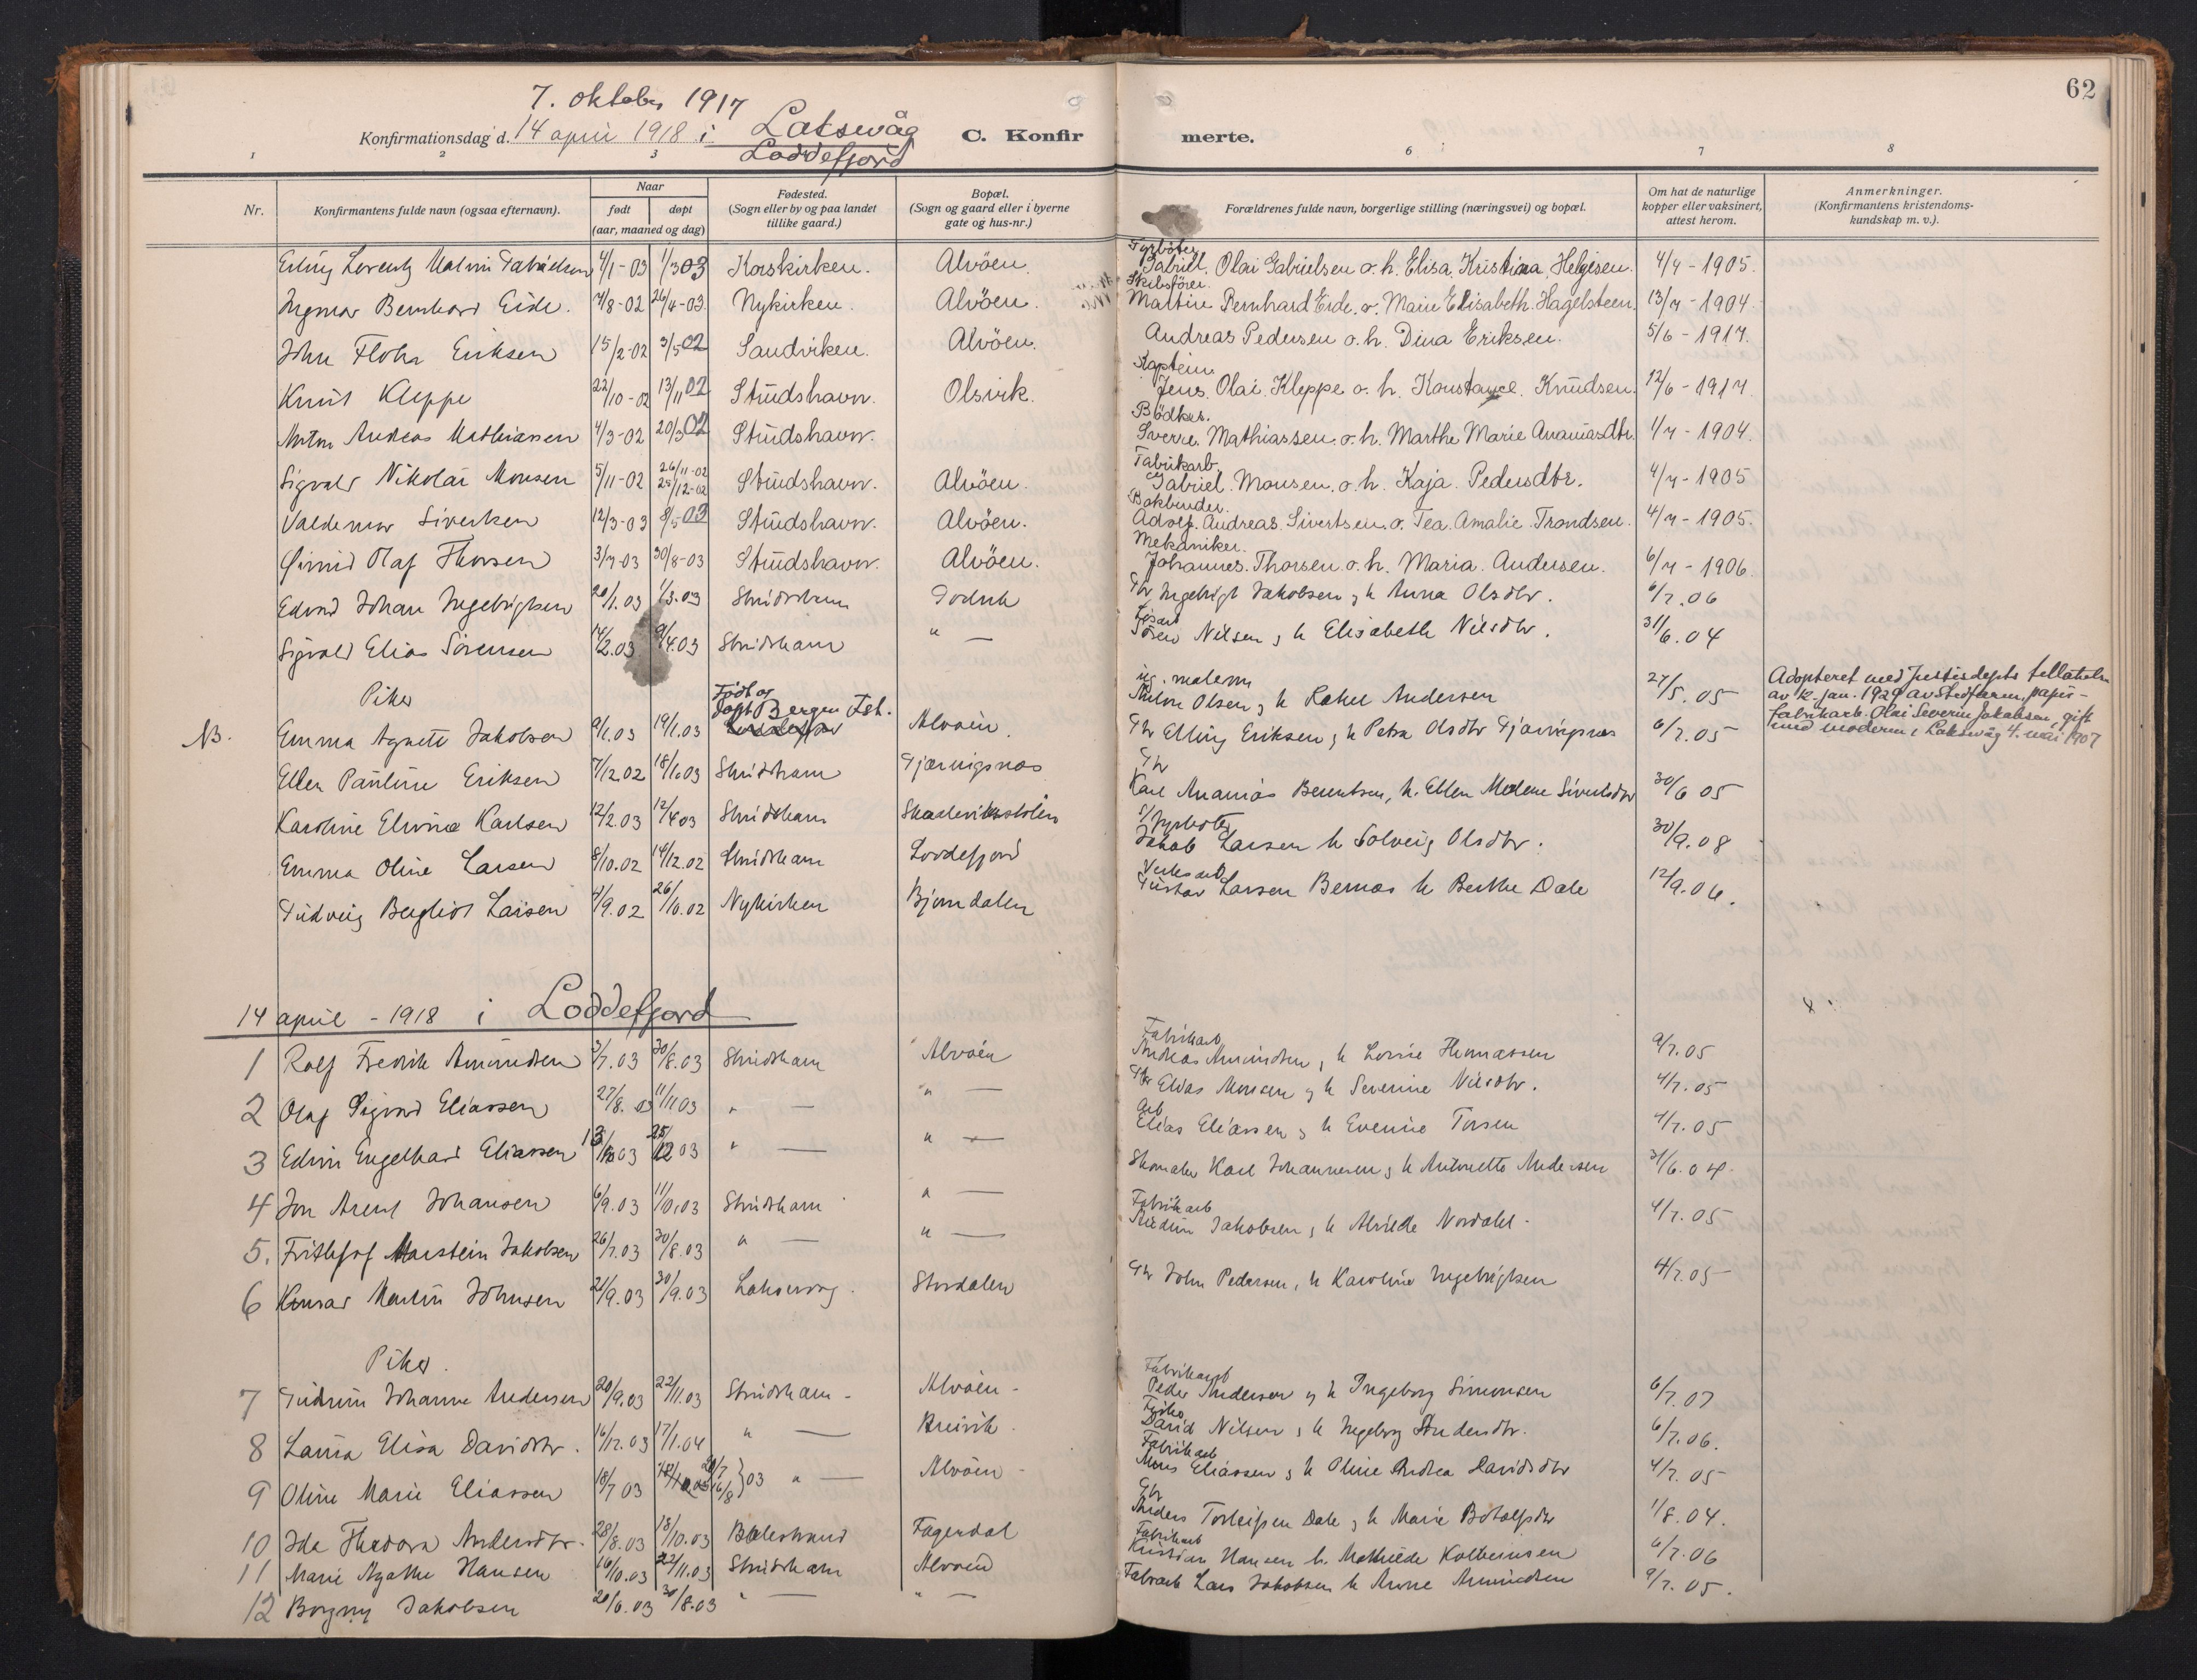 62
7. oktober 1917
Konfirmationsdag d. 14 april 1918 i Laksevåg
Loddefjord
C. Konfir merte.
1 2 3 6 7 8
Nr. Konfirmantens fulde navn (ogsaa efternavn). Naar født døpt (aar, maaned og dag) Fødested. (Sogn eller by og paa landet tillike gaard.) Bopæl. (Sogn og gaard eller i byerne gate og hus-nr.) Forældrenes fulde navn, borgerlige stilling (næringsvei) og bopæl. Om hat de naturlige kopper eller vaksinert, attest herom. Anmerkninger. (Konfirmantens kristendomskundskap m. v.).
Erling Lorentz Malvin Gabrielsen 4/1-03 1/3 03 Korskirken. Alvöen. Fyrböter Gabriel Olai Gabrielsen o. h. Elisa Kristina Helgesen. 4/7-1905.
Ingmar Bernhard Eide. 7/8-02 26/4-03. Nykirken. Alvöen. Skibsförer. Martin Bernhard Eide o. Marie Elisabeth Hagelsteen. 13/7-1904
John Flohr Eriksen 15/2-02 3/5 02 Sandviken. Alvöen. Andreas Pedersen o. h. Dina Eriksen. 5/6-1917.
Knut Kleppe 22/10-02 13/11 02 Strudshavn. Olsvik. Kaptein Jens Olai Kleppe o. h. Konstance Knudsen. 12/6-1917.
Anton Andreas Mathiassen 4/3-02 20/3 02 Strudshavn. Bödker. Sverre Mathiassen o. h. Marthe Marie Ananiasdtr. 1/7-1904.
Sigvald Nikolai Monsen 5/11-02 26/11-02 25/12-02 Strudshavn. Alvöen. Fabrikarb. Gabriel Monsen o. h. Kaja Pedersdtr. 4/7-1905
Valdemar Sivertsen 12/3-03 8/5 03 Strudshavn. Alvöen. Bokbinder. Adolf Andreas Sivertsen o. Tea Amalie Trondsen. 4/7-1905.
Øivind Olaf Thorsen 3/7-03 30/8-03 Strudshavn. Alvöen. Mekaniker. Johannes Thorsen o. h. Maria Andersen. 6/7-1906.
Edvard Johan Ingebrigtsen 20/1.03 1/3.03 Strudshavn Godvik Gbr Ingebrigt Jakobsen og h Anna Olsdtr. 6/7.06
Sigvald Elias Sörensen 14/2.03 9/4.03 Strudshavn " — Lösarb Sören Nilsen og h Elisabeth Nilsdtr. 31/6.04
Piker
NB. Emma Agnete Jakobsen 9/1.03 19/1.03 Født og døpt Bergen Fst. Alvöen. ug. moderen Anton Olsen og h Rakel Andersen 27/5.05 Adopteret med Justisdepts tillatelse
av 12 jan. 1929 av stedfaren, papir-
fabrikarb. Olai Severin Jakobsen, gift
med moderen i Laksevåg 4. mai 1907
Ellen Pauline Eriksen 7/12.02 18/1.03 Strudshavn Gjærvigsnæs Gbr Elling Eriksen og h Petra Olsdtr Gjærvigsnæs 6/7.05
Karoline Elvine Karlsen 12/2.03 12/4 03 Strudshavn Gbr Karl Ananias Berentsen, h. Ellen Malene Sivertsdtr 30/6 05
Emma Oline Larsen 8/10.02 14/12.02 Strudshavn Loddefjord Fyrböter Jakob Larsen h Solveig Olsdtr. 30/9.08
Gudveig Bergliot Larsen 4/9.02 26/10.02 Nykirken Bjørndalen Verksarb Gustav Larsen Bernæs h Berthe Dale 12/9.06.
14 april - 1918 i Loddefjord
1 Rolf Fredrik Amundsen 3/7.03 30/8.03 Strudshavn Alvöen Fabrikarb Andreas Amundsen, h Lovise Thomassen 9/7.05
2 Olaf Sigvard Eliassen 27/8.03 1/11 03 " — " — Gbr Elias Monsen og h Severine Nilsdtr. 4/7.05
3 Edvin Engelhard Eliassen 13/10 03 25/12 03 " — " — Arb Elias Eliassen og h Evenine Torsen 4/7.05
4 Jon Arent Johansen 6/9.03 11/10.03 Strudshavn " — Skomaker Karl Johannesen og h Antonette Andersen 31/6.04.
5. Frithjof Marstein Jakobsen 26/7.03 30/8.03 " — " — Fabrikarb Jakobsen, h Alvilde Nordahl. 4/7.05
6 Konrad Martin Johnsen 21/9.03 30/9.03 Laksevaag. Stordalen Gbr John Pedersen, h Karoline Ingebrigtsen 4/7.05
Piker.
7 Gudrun Johanne Andersen 20/9.03 22/11.03 Strudshavn - Alvöen - Fabrikarb Peder Andersen og h Ingeborg Simonsen 6/7.07
8 Laura Elisa Davidsdtr. 16/12.03 17/1.04 " — Breivik. David Nilsen, h Ingeborg Andersdtr. 6/7.06.
9 Oline Marie Eliassen 18/7 03 20/7 16/8 } 03 " — Alvöen - Fabrikarb Mons Eliassen, h Oline Andrea Davidsdtr 4/7.05
10 Ida Theodora Andersdtr. 28/8.03 18/10.03 Balestrand Fagerdal Gbr Anders Torleifsen Dale og h Marie Botolfsdtr 1/8.04.
11 Marie Agathe Hansen 16/10.03 22/11.03 Strudshavn Alvöen Fabrikarb Kristian Hansen h. Mathilde Kolbeinsen 6/7.06
12 Borgny Jakobsen 20/6.03 30/8.03 " — " — Fabrarb Lars Jakobsen h Anne Amundsen 9/7.05.